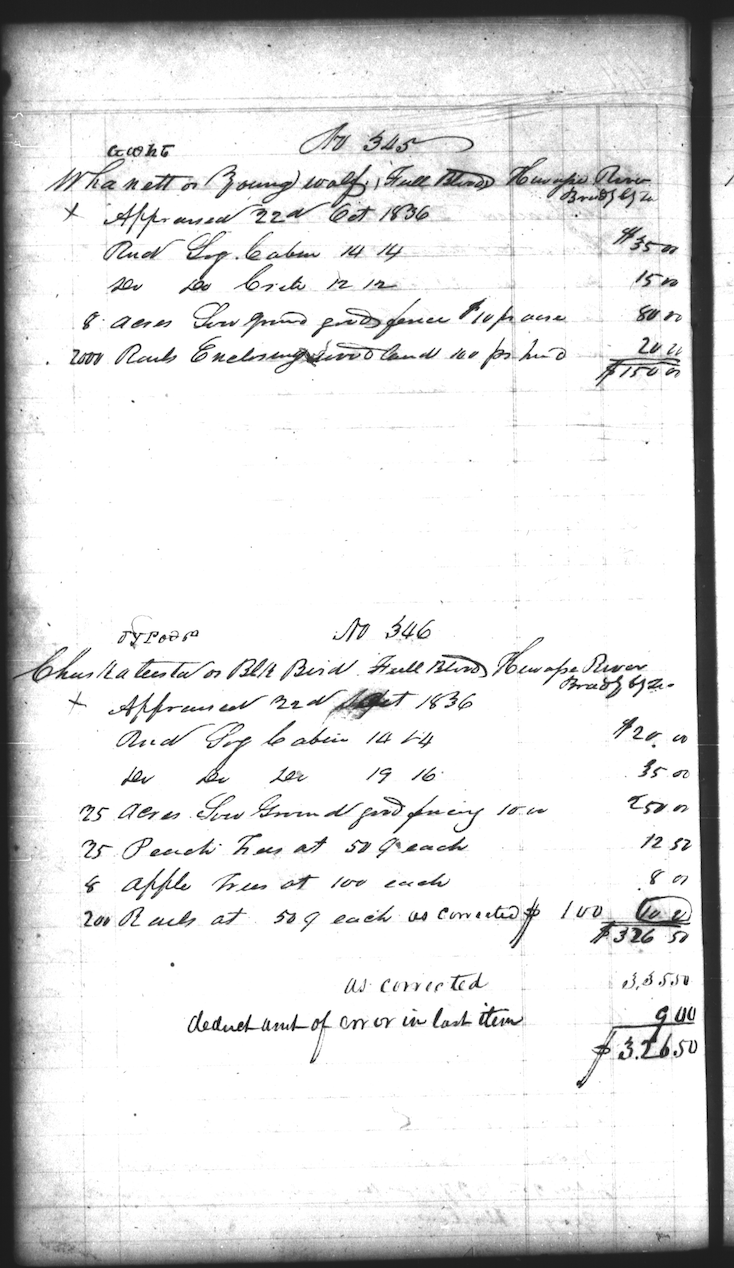 No 345
Whanett or Young wolf, Full Blood Hiwassee River
Bradly
x Appraised 22d Oct 1836
Rnd Log Cabin 14 14 $35 00
Do Do Crib 12 12 15 00
8 acres Low ground good fence $10 pr acre 80 00
2000 Rails Enclosing wood land 100 pr hund 20 00
$150 00
No 346
Chuskateesta or Blk Bird Full Blood Hiwassee River
Bradly
x Appraised 22d Sept 1836
Rnd Log Cabin 14 14 $20 00
Do Do Do 19 16 35 00
25 Acres Low Ground good fencing 10 00 250 00
25 Peach Trees at 50 ¢ each 12 50
8 Apple Trees at 100 each 8 00
200 Rails at 50 ¢ each as corrected $ 1 00 10 00
$326 50
as corrected 335.50
deduct amt of error in last item 9 00
$326.50